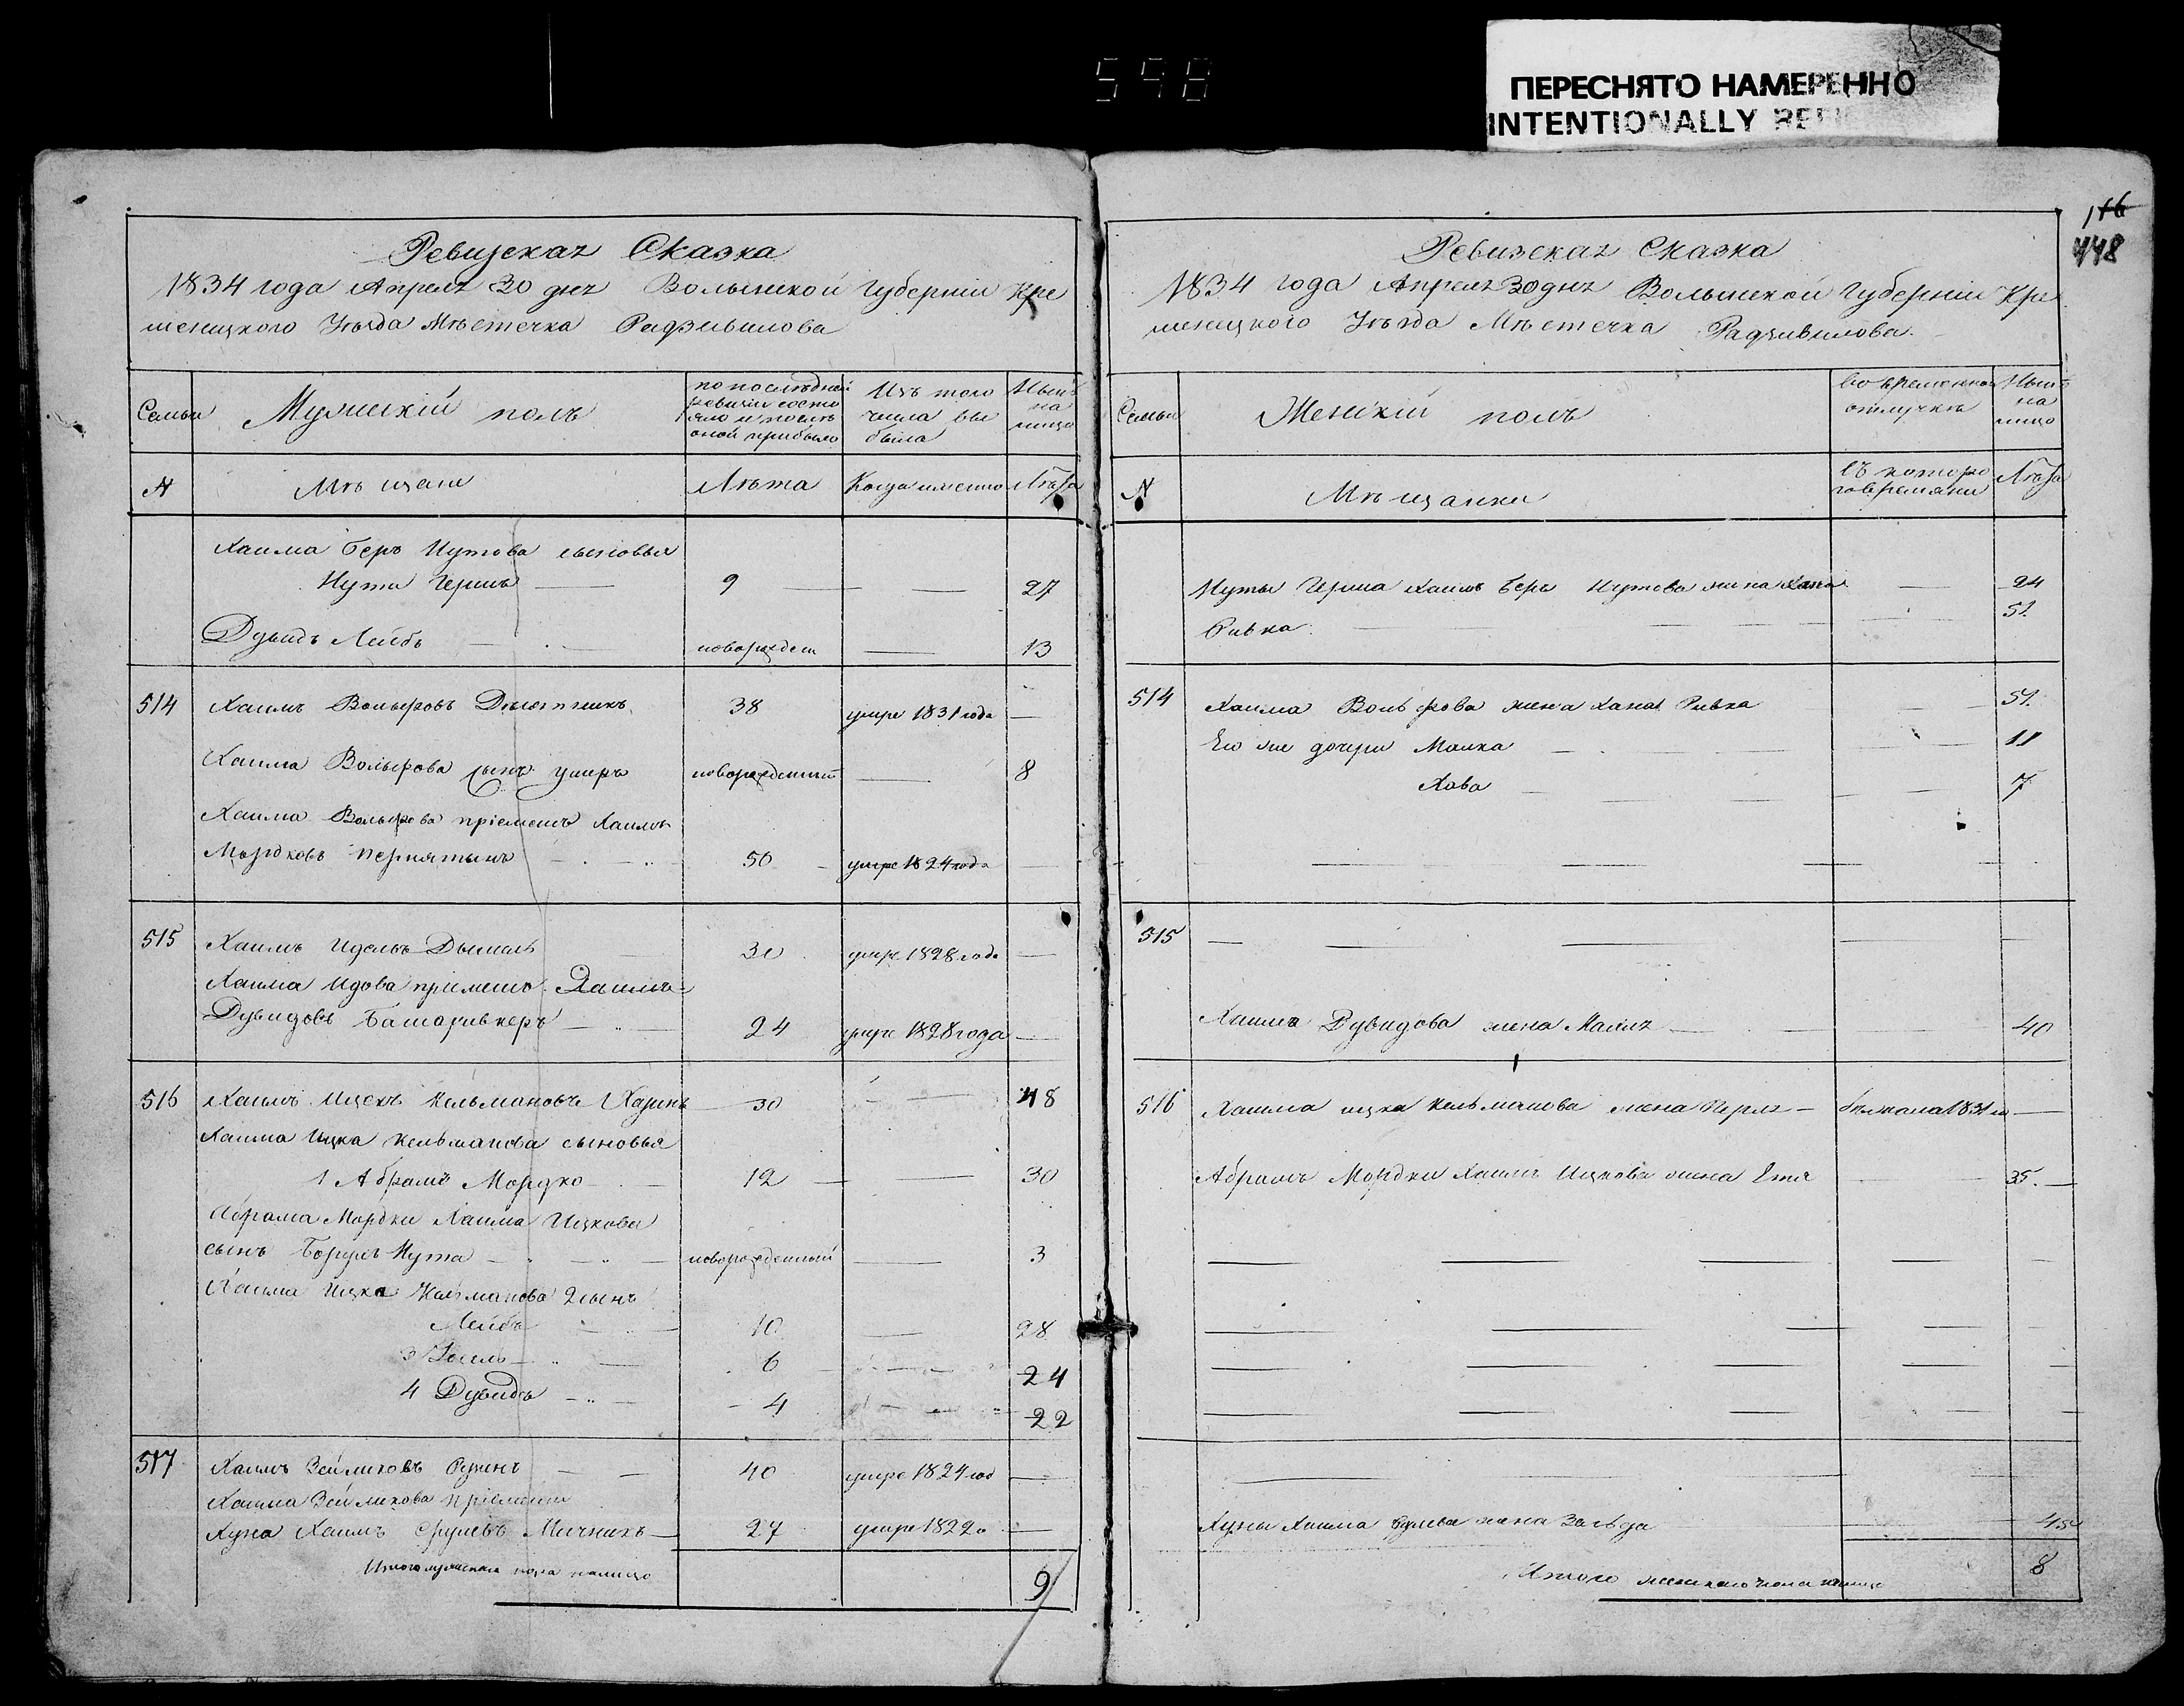 598
ПЕРЕСНЯТО НАМЕРЕННО
INTENTIONALLY
116
448
Ревизская Сказка
1834 года Апреля 30 дня Волынской Губернии Кре
менецкого Уѣзда Мѣстечка Радзивилова
Семьи
Мужский полъ
по последней
ревизии состо
яло и после
оной прибыло
Изъ того
числа вы
было
Нынѣ
на
лицо
№
Мѣщане
Лѣта
Когда именно
Лѣта
Хаима Беръ Нутова сыновья
Нута Гершъ 9 27
Дувидъ Лейбъ новорожден 13
514 Хаимъ Вольфовъ 38 умре 1831 года
Хаима Вольфова сынъ новорожденный 8
Хаима Вольфова пріемышъ Хаимъ
Мордковъ 50 умре 1824 года
515 Хаимъ 30 умре 1828 года
Хаима Идова пріемышъ Хаимъ
Дувидовъ 24 умре 1828 года
516 Хаимъ Ицекъ Кельмановъ Хазинъ 30 48
Хаима Ицка Кельманова сыновья
1 Абрамъ Мордко 12 30
Абрама Мордки Хаима Ицкова
сынъ Борухъ Нута новорожденный 3
Хаима Ицка Кельманова 2 сынъ
Лейба 10 28
3 6 24
4 Дувидъ 4 22
517 Хаимъ Зейликовъ 40 умре 1824 год
Хаима Зейликова пріемышъ
Хуна Хаимъ Сруловъ Мичникъ 27 умре 1822
Итого мужеска пола налицо 9
Ревизская Сказка
1834 года Апреля 30 дня Волынской Губернии Кре
менецкого Уѣзда Мѣстечка Радзивилова
Семьи
Женскій полъ
во временной
отлучкѣ
Нынѣ
на
лицо
№
Мѣщанки
Съ которо
го времяни
Лѣта
Нуты Герша Хаимъ Беръ Нутова жена Хана 24
Ривка 51
514 Хаима Вольфова жена Хана Ривка 51
Ею же дочери Малка 11
Хава 7
515
Хаима Дувидова жена Малия 40
516 Хаима Ицка Кельманова жена Перля
Абрамъ Мордки Хаимъ Ицкова жена Етя 35
Хуны Хаима Срулева жена Зельда 45
Итого женского пола налицо 8